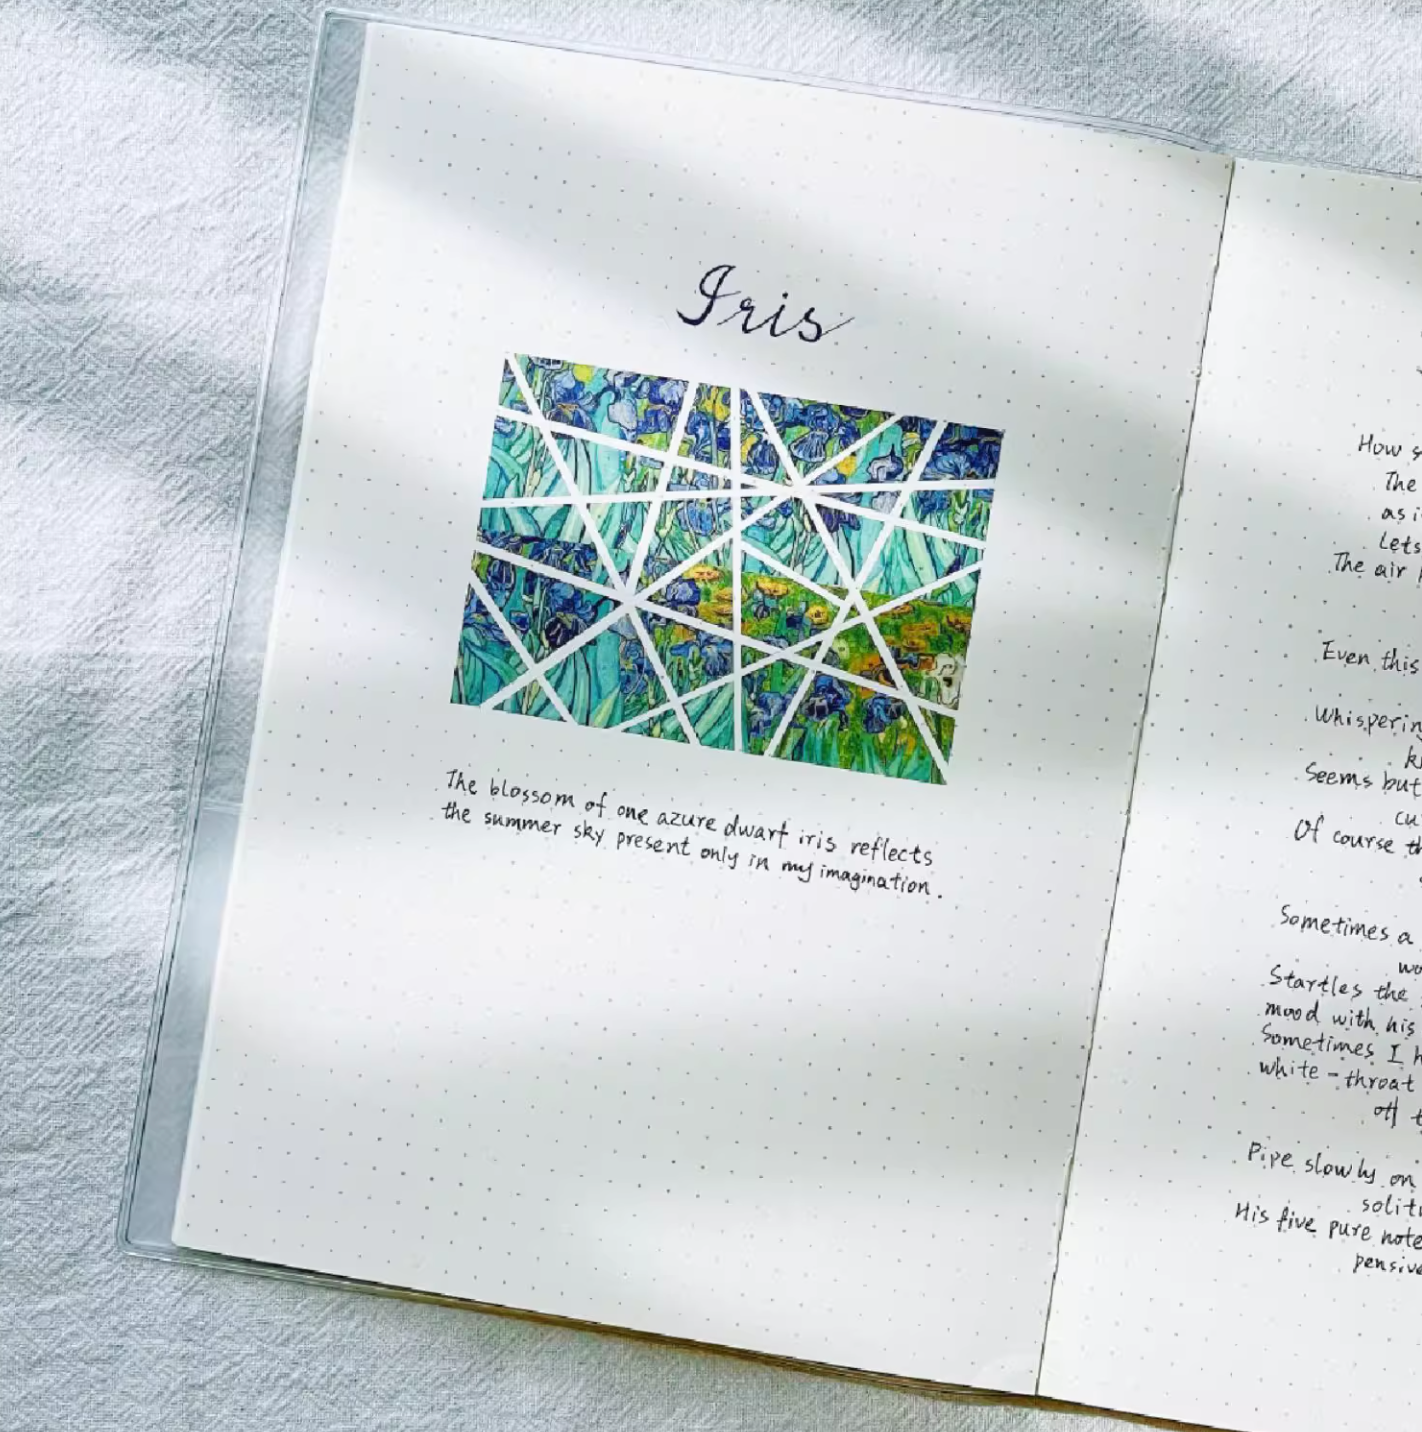 Iris
The blossom of one azure dwarf iris reflects
the summer sky present only in my imagination.
How
The
as i
Lets
The air
Even this
Whispering
Seems but
cu
Of course th
Sometimes a
wo
Startles the
mood with his
Sometimes I h
white-throat
off t
Pipe slowly on
solit
His five pure note
pensive